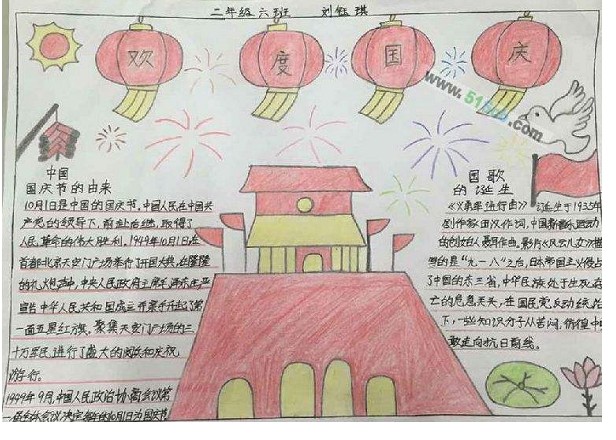 二年级六班 刘钰琪
欢度国庆
www.51
.com
中国
国庆节的由来
10月1日是中国的国庆节,中国人民在中国共
产党的领导下,前赴后继,取得了
人民革命的伟大胜利,1949年10月1日在
首都北京天安门广场举行了开国大典,在隆隆
的礼炮声中,中央人民政府主席毛泽东庄严
宣告中华人民共和国成立并亲手升起了第
一面五星红旗,聚集天安门广场的三
十万军民,进行了盛大的阅兵和庆祝
游行。
1949年9月,中国人民政治协商会议第
一届全体会议决定每年10月1日为国庆节
国歌
的诞生
《义勇军进行曲》诞生于1935年
创作,田汉作词,中国新音乐运动
的创始人聂耳作曲,影片《风云儿女》
的是"九·一八"之后,日本帝国主义侵占
了中国的东三省,中华民族处于生死存
亡的危急关头,在国民党反动统治
下,一些知识分子从苦闷、彷徨中
敢走向抗日前线。